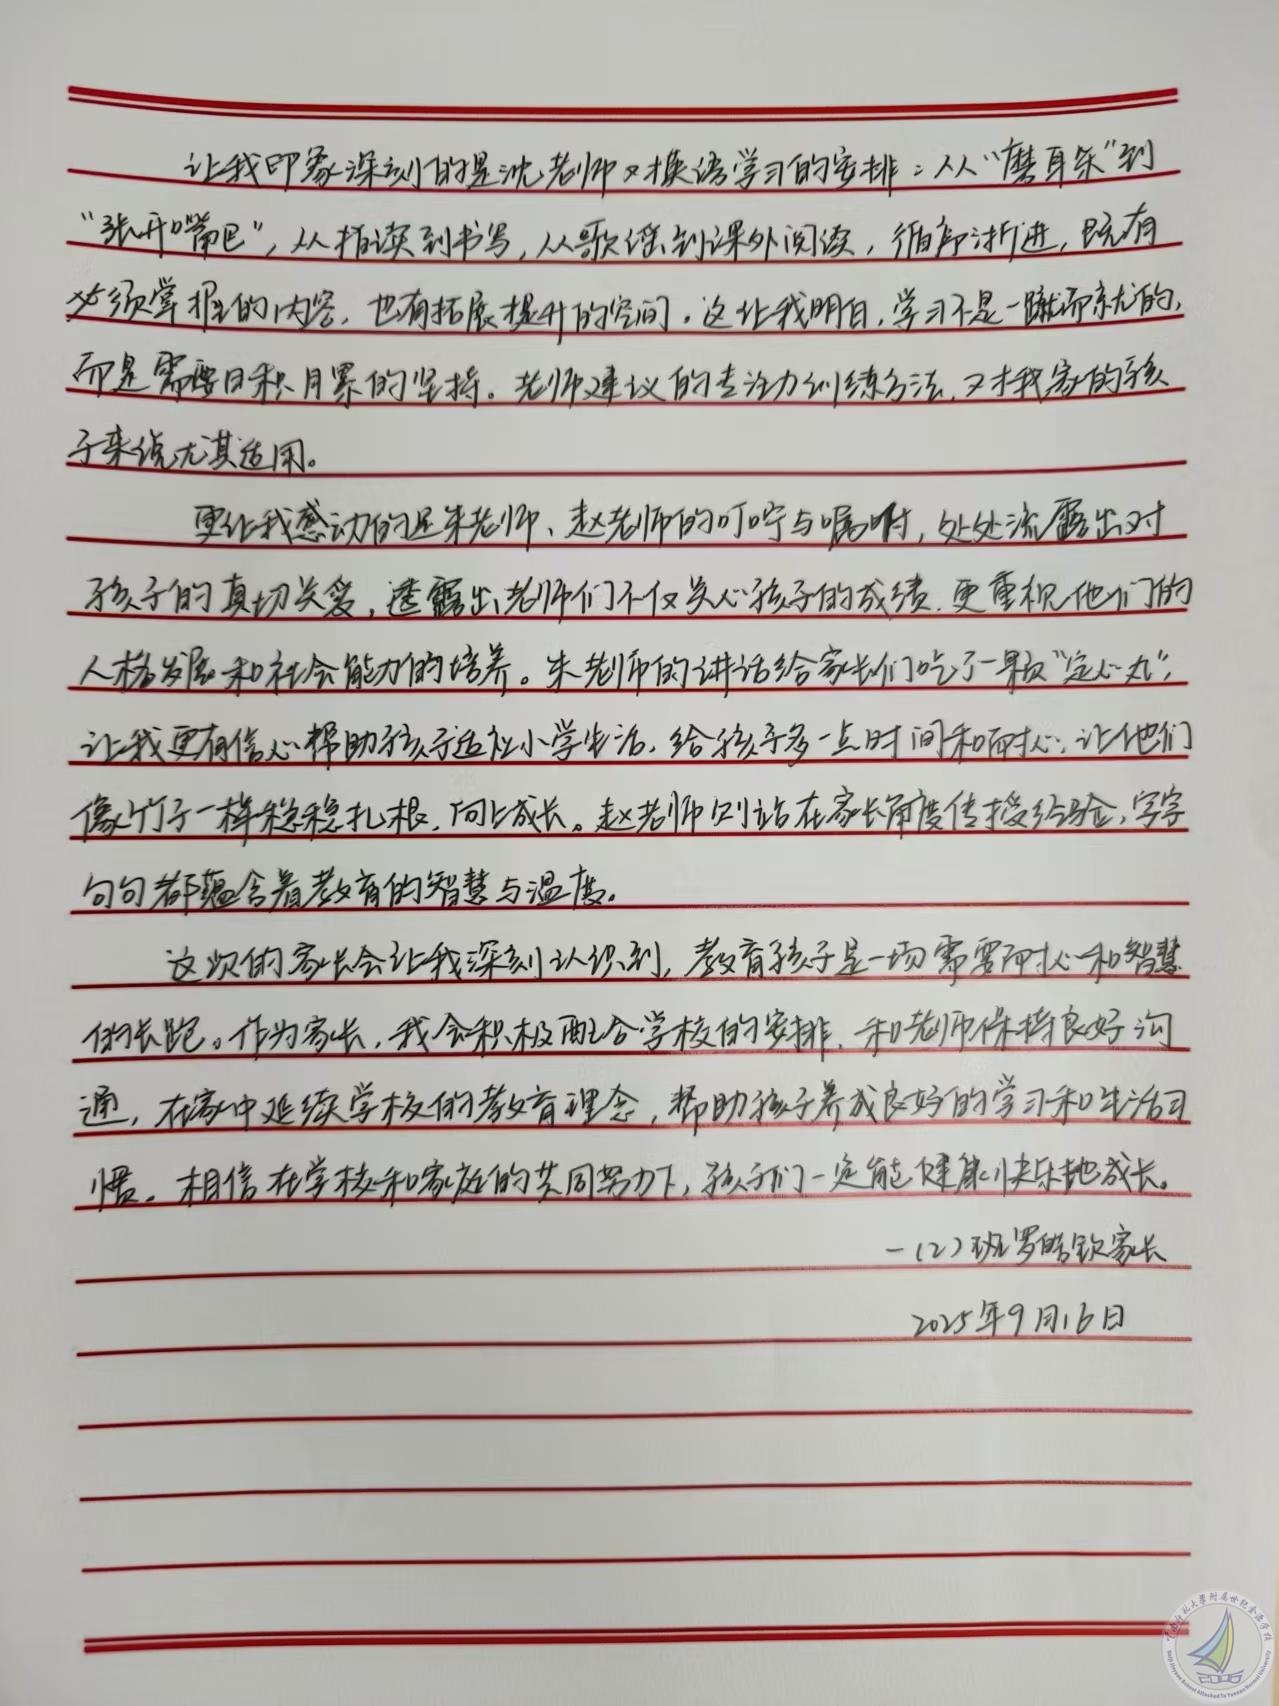 让我印象深刻的是沈老师对英语学习的安排：从“磨耳朵”到
“张开嘴巴”，从指读到书写，从歌谣到课外阅读，循序渐进，既有
必须掌握的内容，也有拓展提升的空间。这让我明白，学习不是一蹴而就的，
而是需要日积月累的坚持。老师建议的专注力训练方法，对我家的孩
子来说尤其适用。
更让我感动的是朱老师、赵老师的叮咛与嘱咐，处处流露出对
孩子的真切关爱，透露出老师们不仅关心孩子的成绩，更重视他们的
人格发展和社会能力的培养。朱老师的讲话给家长们吃了一颗“定心丸”，
让我更有信心帮助孩子适应小学生活，给孩子多一点时间和耐心，让他们
像竹子一样稳稳扎根，向上成长。赵老师则站在家长角度传授经验，字字
句句都蕴含着教育的智慧与温度。
这次的家长会让我深刻认识到，教育孩子是一场需要耐心和智慧
的长跑。作为家长，我会积极配合学校的安排，和老师保持良好沟
通，在家中延续学校的教育理念，帮助孩子养成良好的学习和生活习
惯。相信在学校和家庭的共同努力下，孩子们一定能健康快乐地成长。
一（2）班罗皓钦家长
2025年9月16日